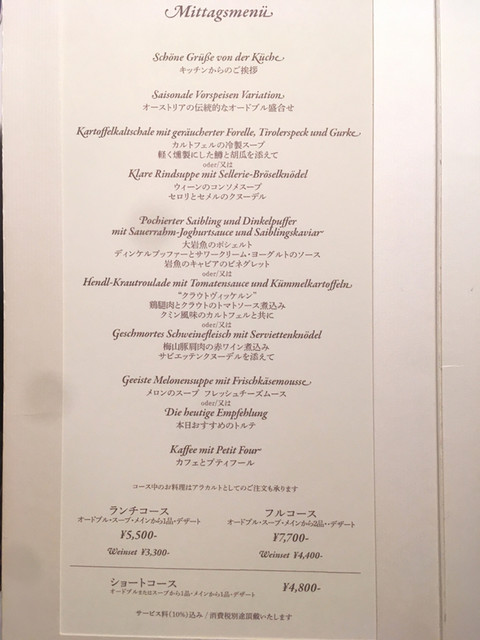 Mittagsmenü
Schöne Grüße von der Küche
キッチンからのご挨拶
Saisonale Vorspeisen Variation
オーストリアの伝統的なオードブル盛合せ
Kartoffelkaltschale mit geräucherter Forelle, Tirolerspeck und Gurke
カルトフェルの冷製スープ
軽く燻製にした鱒と胡瓜を添えて
oder/又は
Klare Rindsuppe mit Sellerie-Bröselknödel
ウィーンのコンソメスープ
セロリとセメルのクヌーデル
Pochierter Saibling und Dinkelpuffer
mit Sauerrahm-Joghurtsauce und Saiblingskaviar
大岩魚のポシェルト
ディンケルプッファーとサワークリーム・ヨーグルトのソース
岩魚のキャビアのビネグレット
oder/又は
Hendl-Krautroulade mit Tomatensauce und Kümmelkartoffeln
“クラウトヴィッケルン”
鶏腿肉とクラウトのトマトソース煮込み
クミン風味のカルトフェルと共に
oder/又は
Geschmortes Schweinefleisch mit Serviettenknödel
梅山豚肩肉の赤ワイン煮込み
サビエッテンクヌーデルを添えて
Geeiste Melonensuppe mit Frischkäsemousse
メロンのスープ フレッシュチーズムース
oder/又は
Die heutige Empfehlung
本日おすすめのトルテ
Kaffee mit Petit Four
カフェとプティフール
コース中のお料理はアラカルトとしてのご注文も承ります
ランチコース フルコース
オードブル・スープ・メインから1品・デザート オードブル・スープ・メインから2品・デザート
¥5,500- ¥7,700-
Weinset ¥3,300- Weinset ¥4,400-
ショートコース ¥4,800-
オードブルまたはスープから1品・メインから1品・デザート
サービス料(10%)込み / 消費税別途頂戴いたします